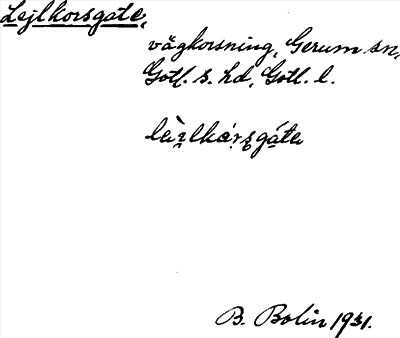 Lejlkorsgate,
vägkorsning, Gerum sn,
Gotl. s. hd, Gotl. l.
B. Bolin 1931.